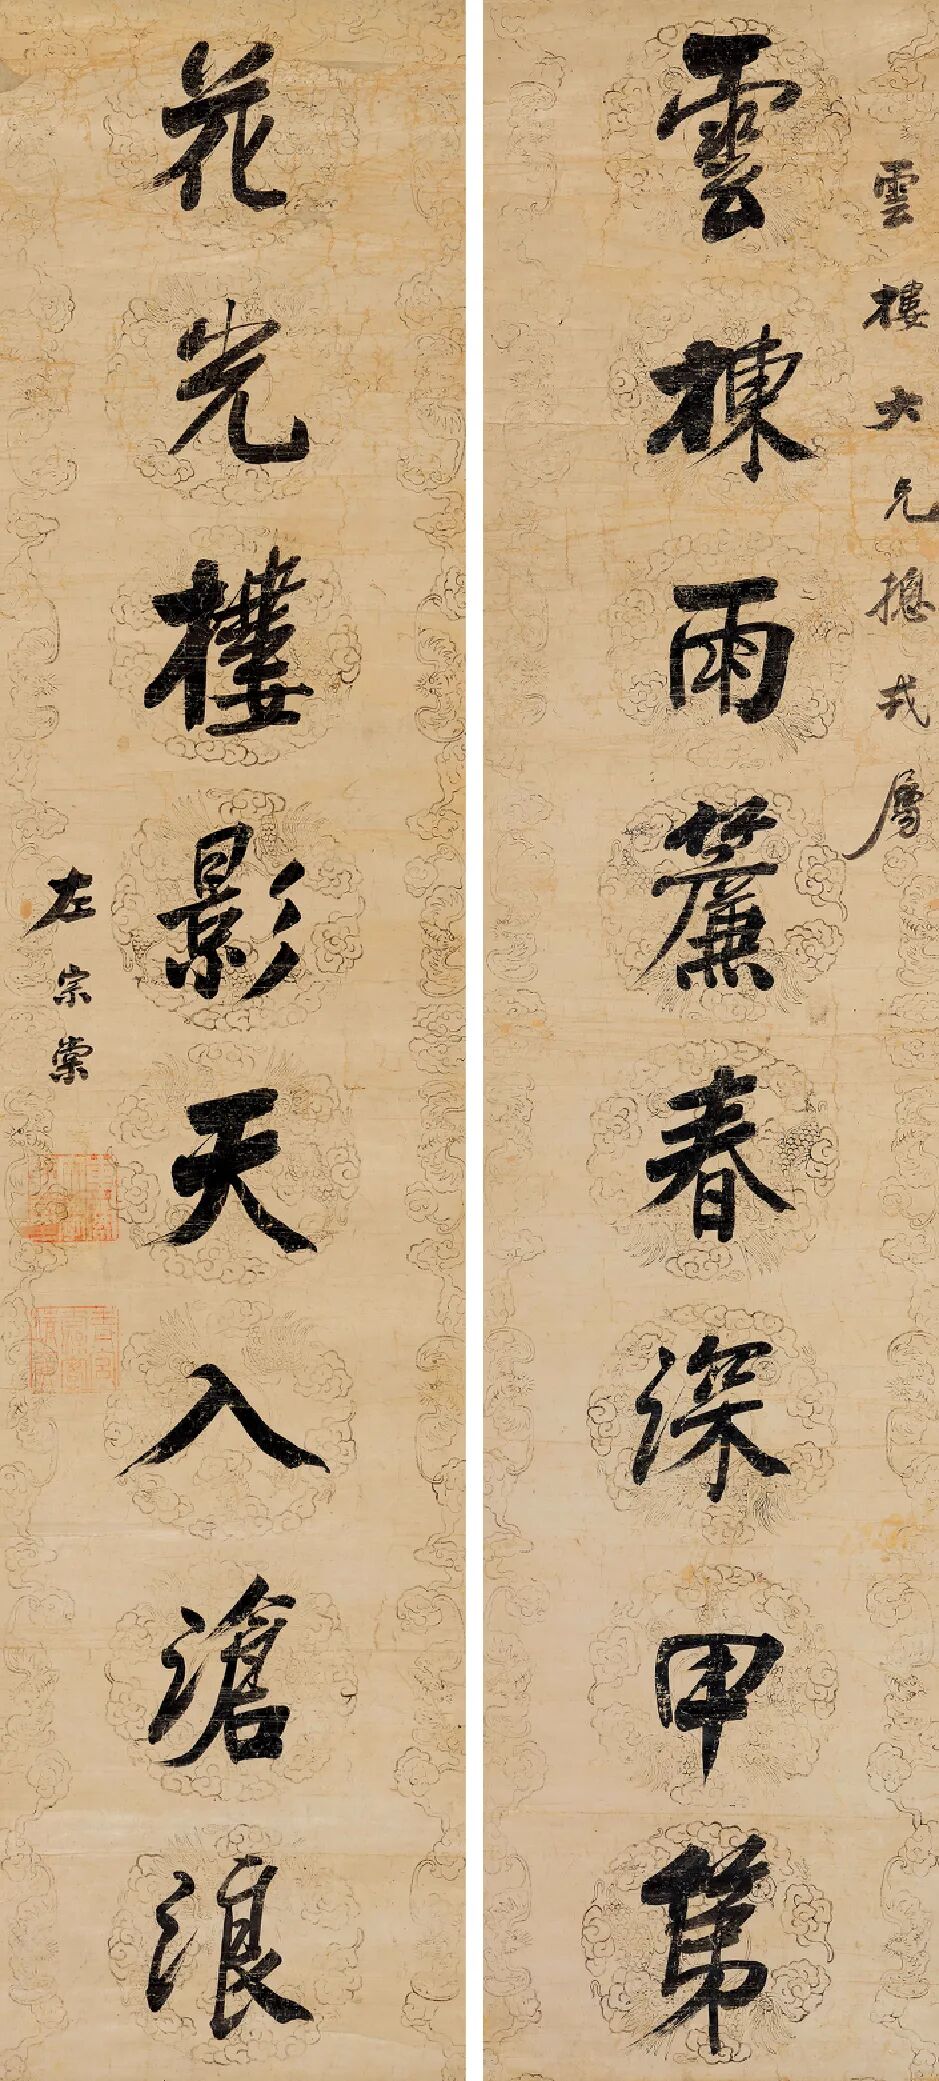 雲樓大兄摠戎屬
雲棟雨簾春深甲第
花光樓影天入滄浪
左宗棠